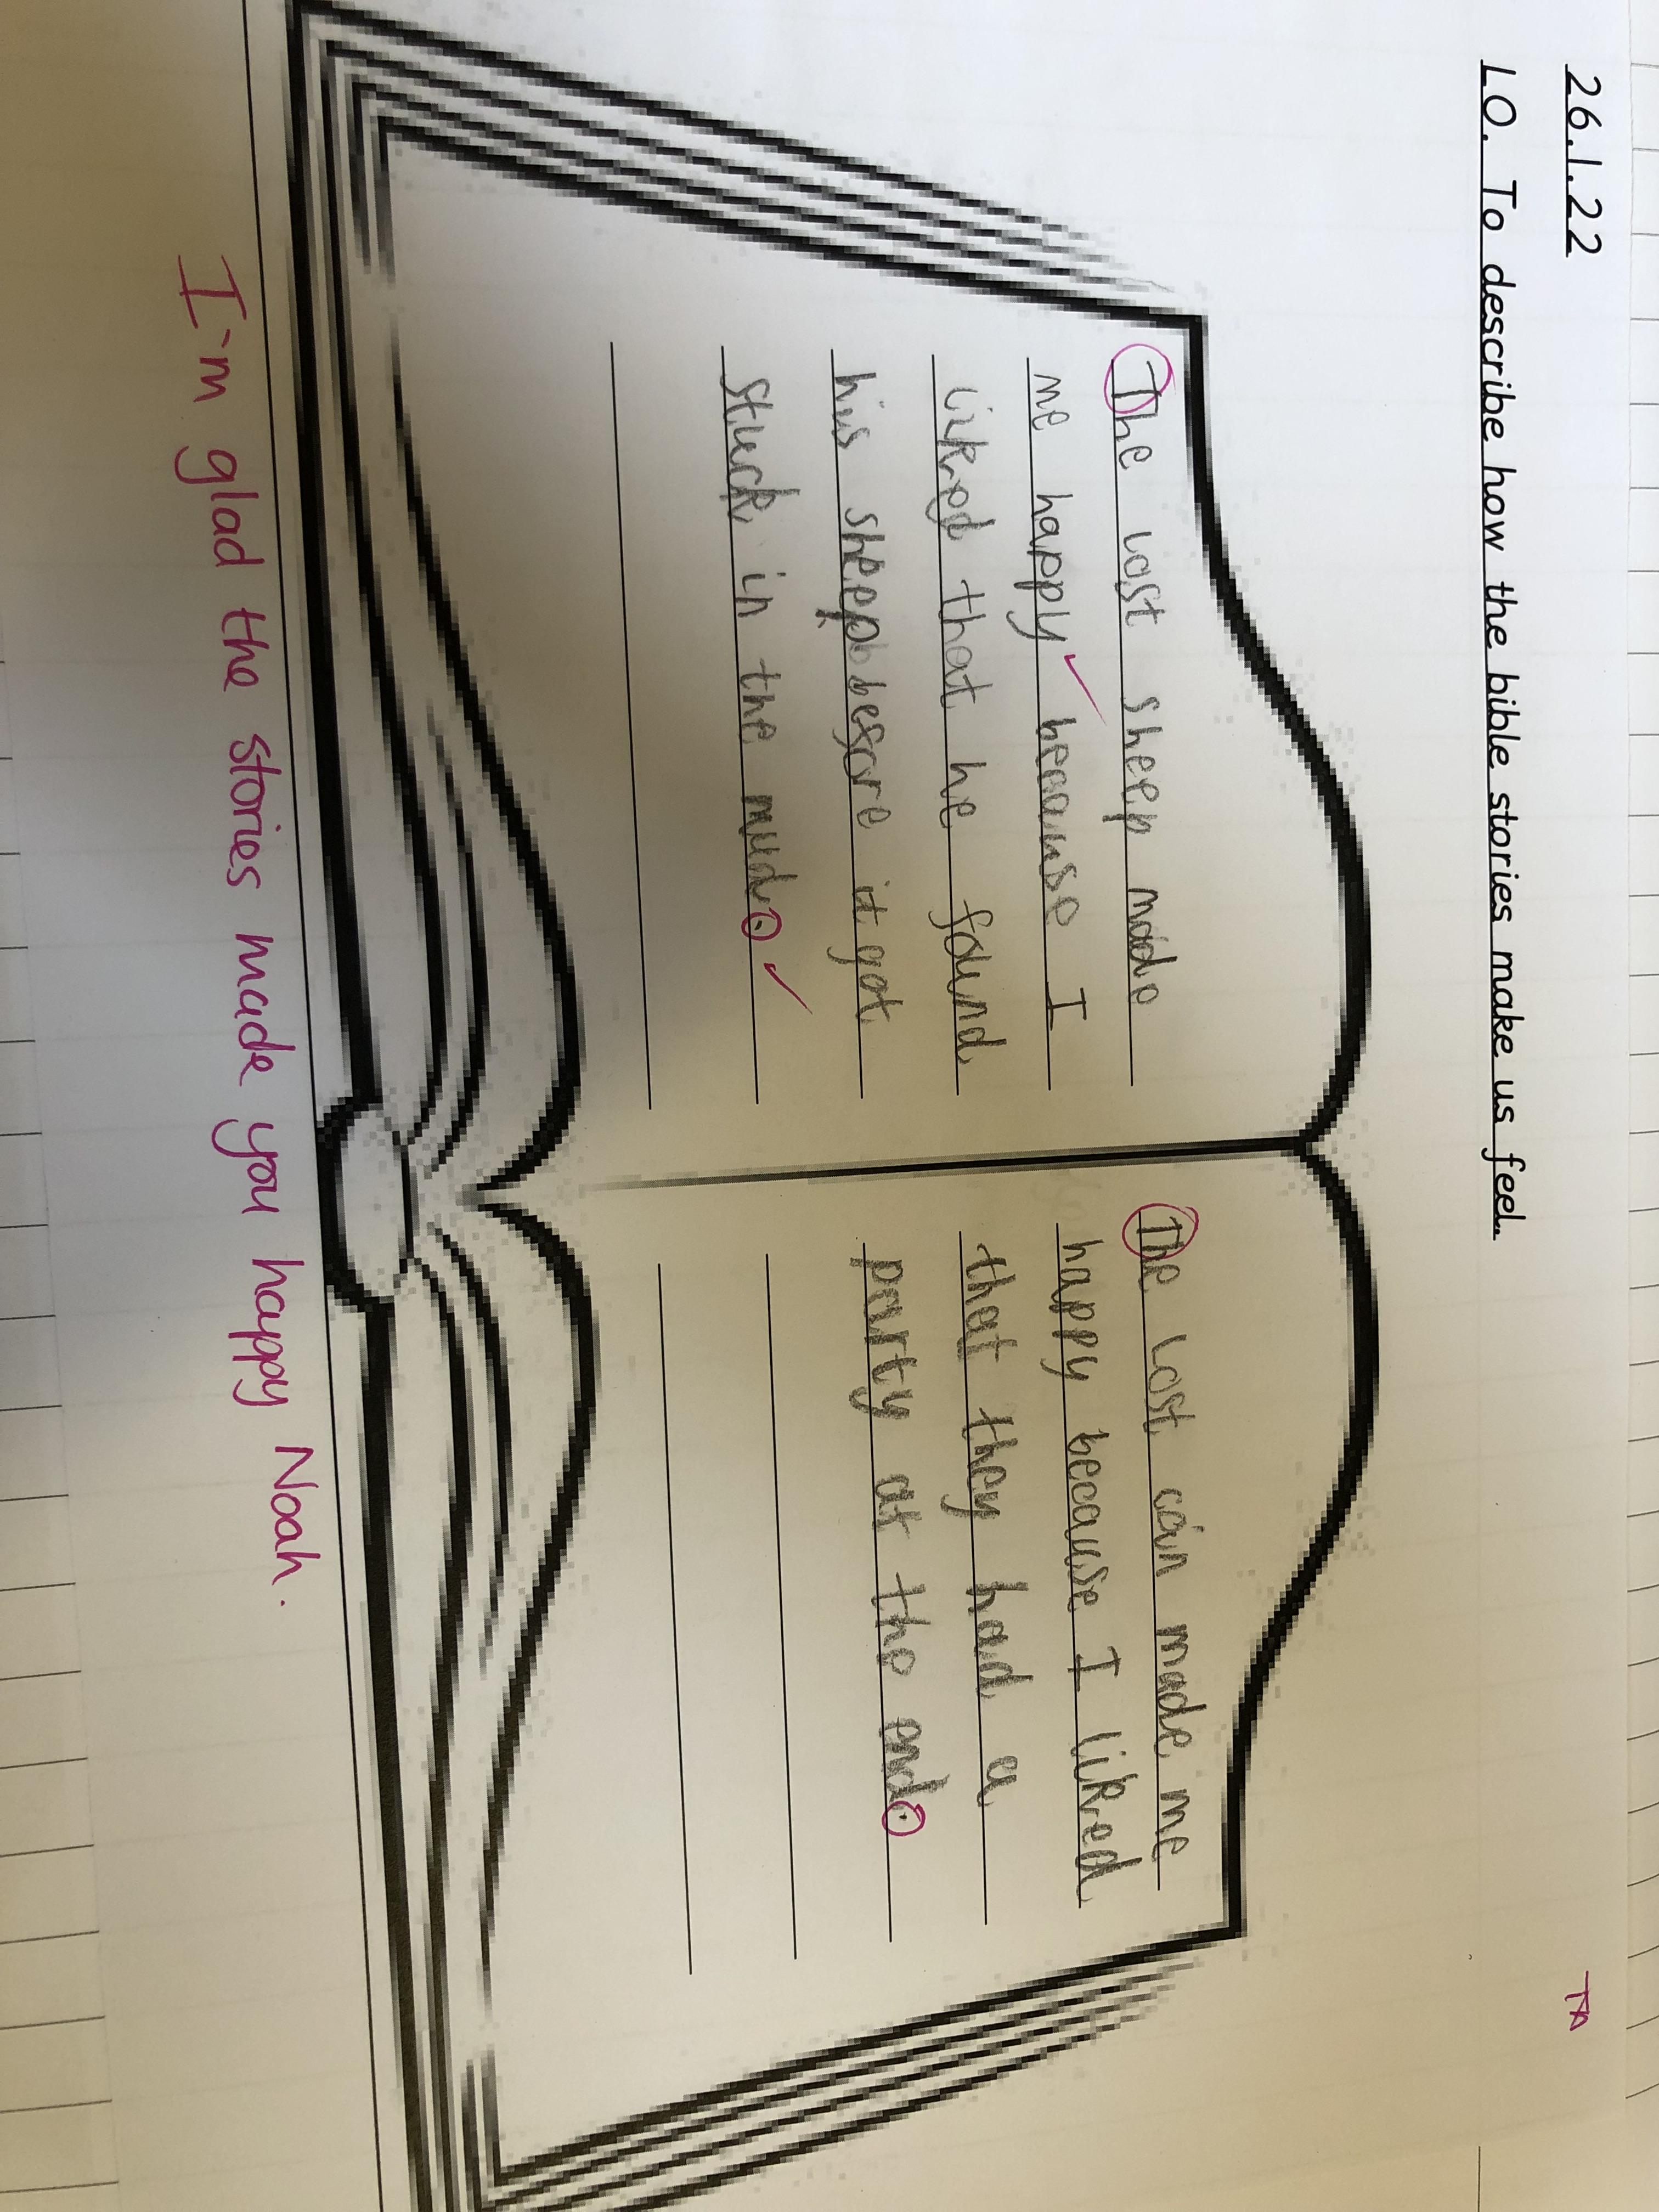 26.1.22
TA
LO. To describe how the bible stories make us feel.
The lost sheep made
me happy because I
liked that he found
his sheep before it got
stuck in the mud.
The lost coin made me
happy because I liked
that they had a
party at the end.
I'm glad the stories made you happy Noah.